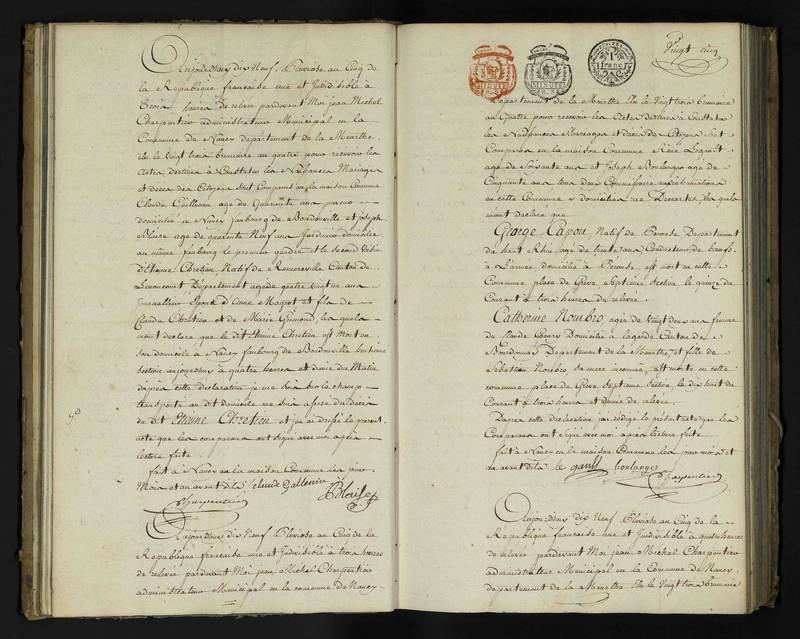 Aujourd'huy dix Neuf Pluviose au Cinq de
la Republique francaise une et Indivisible à
trois heures de relevé pardevant Moi jean Michel
Charpentier administrateur Municipal en la
Commune de Nancy departement de la Meurthe
élu le vingt trois brumaire an quatre pour recevoir les
actes destinés à Constater les Naissances Mariages
et deces des Citoyens sont Comparus en la maison Commune
Claude Guillemin agé de Quarante ans
domicilié à Nancy faubourg de Boudonville et Joseph
agé de quarante Neuf ans Jardinier domicilié
au même faubourg le premier gendre et le second voisin
d'Etienne Chretien Natif de Remereville Canton de
Lenoncourt Département agé de quatre vingt un ans
journallier Epoux d'Anne Magrot et fils de
Claude Chretien et de Marie Grimont les quels
mont declaré que le dit Etienne Chretien est Mort en
son domicile à Nancy faubourg de Boudonville huitieme
Section aujourdhuy à quatre heures et demie du Matin
d'après cette declaration je me suis sur le champ
transporté au dit domicile me suis assuré du décès
du dit Etienne Chretien et j'ai dressé le present
acte que les comparans ont signé avec moi après
lecture faite
fait à Nancy en la maison Commune les jour
Mois et an avant dits claude Gallemin
Charpentier
Aujourdhuy dix Neuf Pluviose au Cinq de la
Republique francaise une et Indivisible à trois heures
de relevé pardevant Moi jean Michel Charpentier
administrateur Municipal en la commune de Nancy
Vingt cinq
1 franc
departement de la Meurthe élu le Vingt trois brumaire
an Quatre pour recevoir les Actes destinés à Constater
les Naissances Mariages et décès des Citoyens sont
Comparus en la maison Commune
agé de Soixante ans et Joseph Boulanger agé de
Cinquante ans tous deux Commissaires
en cette Commune y domiciliés rue Descartes les quels
mont declaré que
George Capou Natif de Departement
du haut Rhin agé de trente ans Conducteur de boeufs
à L'armée domicilié à est mort en cette
Commune place de Greve Septieme Section le quinze du
Courant à trois heures de relevé
Catherine Noubro agée de Vingt deux ans femme
de Claude Domicilié à Lagarde Canton de
Bourdonnay Departement de la Meurthe, et fille de
Sebastien Noubro est morte en cette
commune place de Greve Septieme Section, le dix huit du
Courant à trois heures et demie de relevée
D'après cette declaration j'ai rédigé le présent acte que les
Comparans ont signé avec moi après lecture faite
fait à Nancy en la maison Commune les jour mois et
an avant dits. boulanger
Charpentier
Aujourdhuy dix Neuf Pluviose au Cinq de la
Republique francaise une et Indivisible à quatre heures
de relevé pardevant Moi jean Michel Charpentier
administrateur Municipal en la Commune de Nancy
departement de la Meurthe élu le Vingt trois brumaire